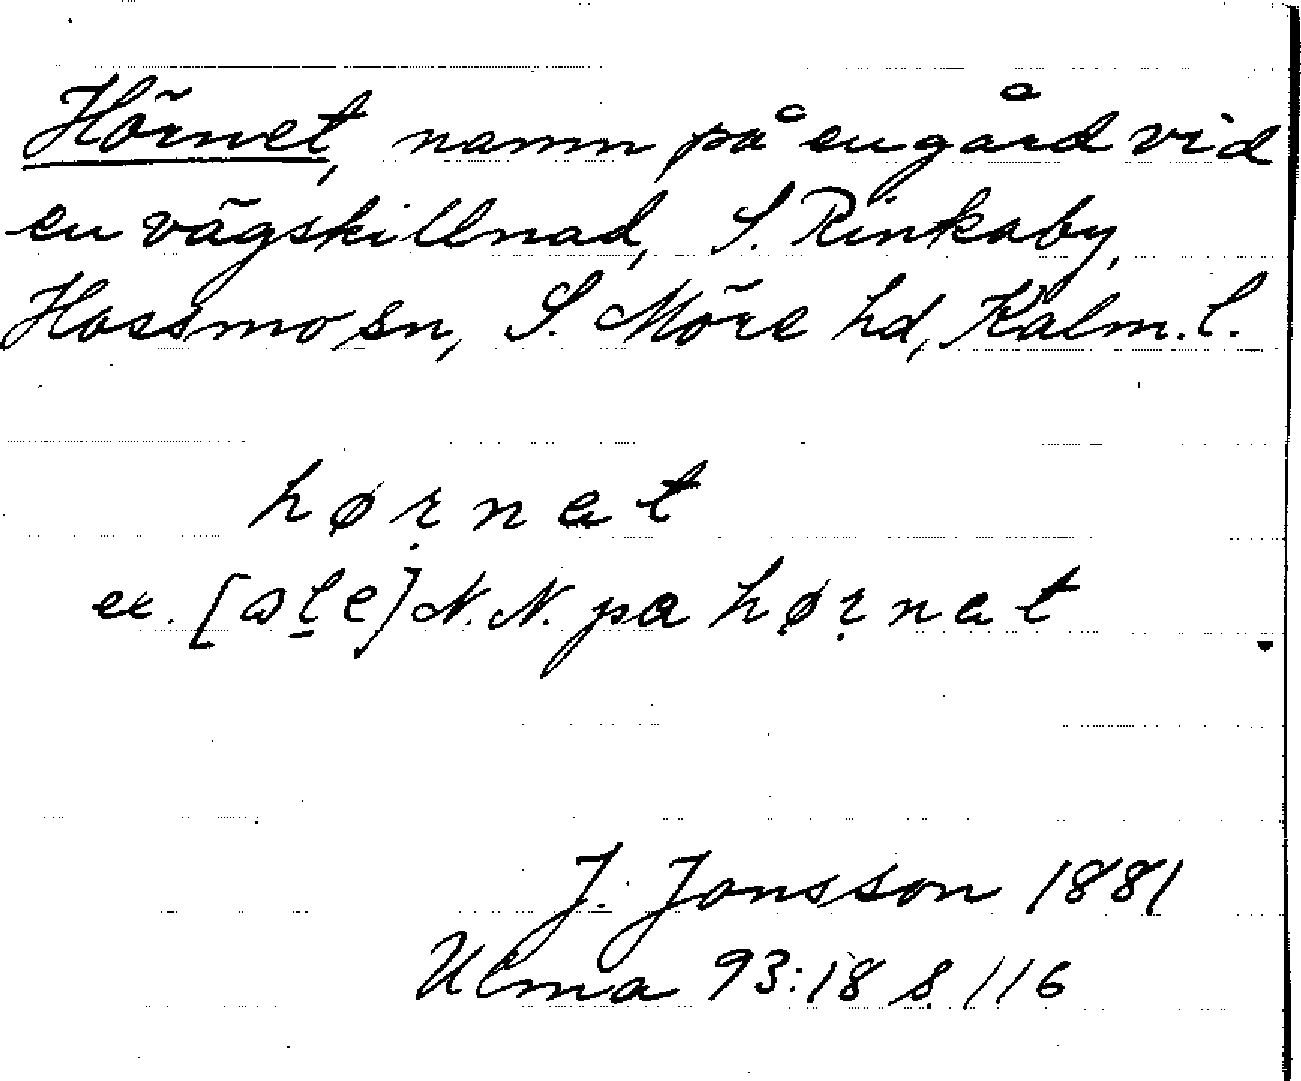 Hörnet, namn på en gård vid
en vägskillnad, S. Rinkaby,
Hossmo sn, S. Möre hd, Kalm. l.
hørnat
ex. [ ] N. N. pa hørnat
J. Jonsson 1881
Ulma 93:18 s. 116